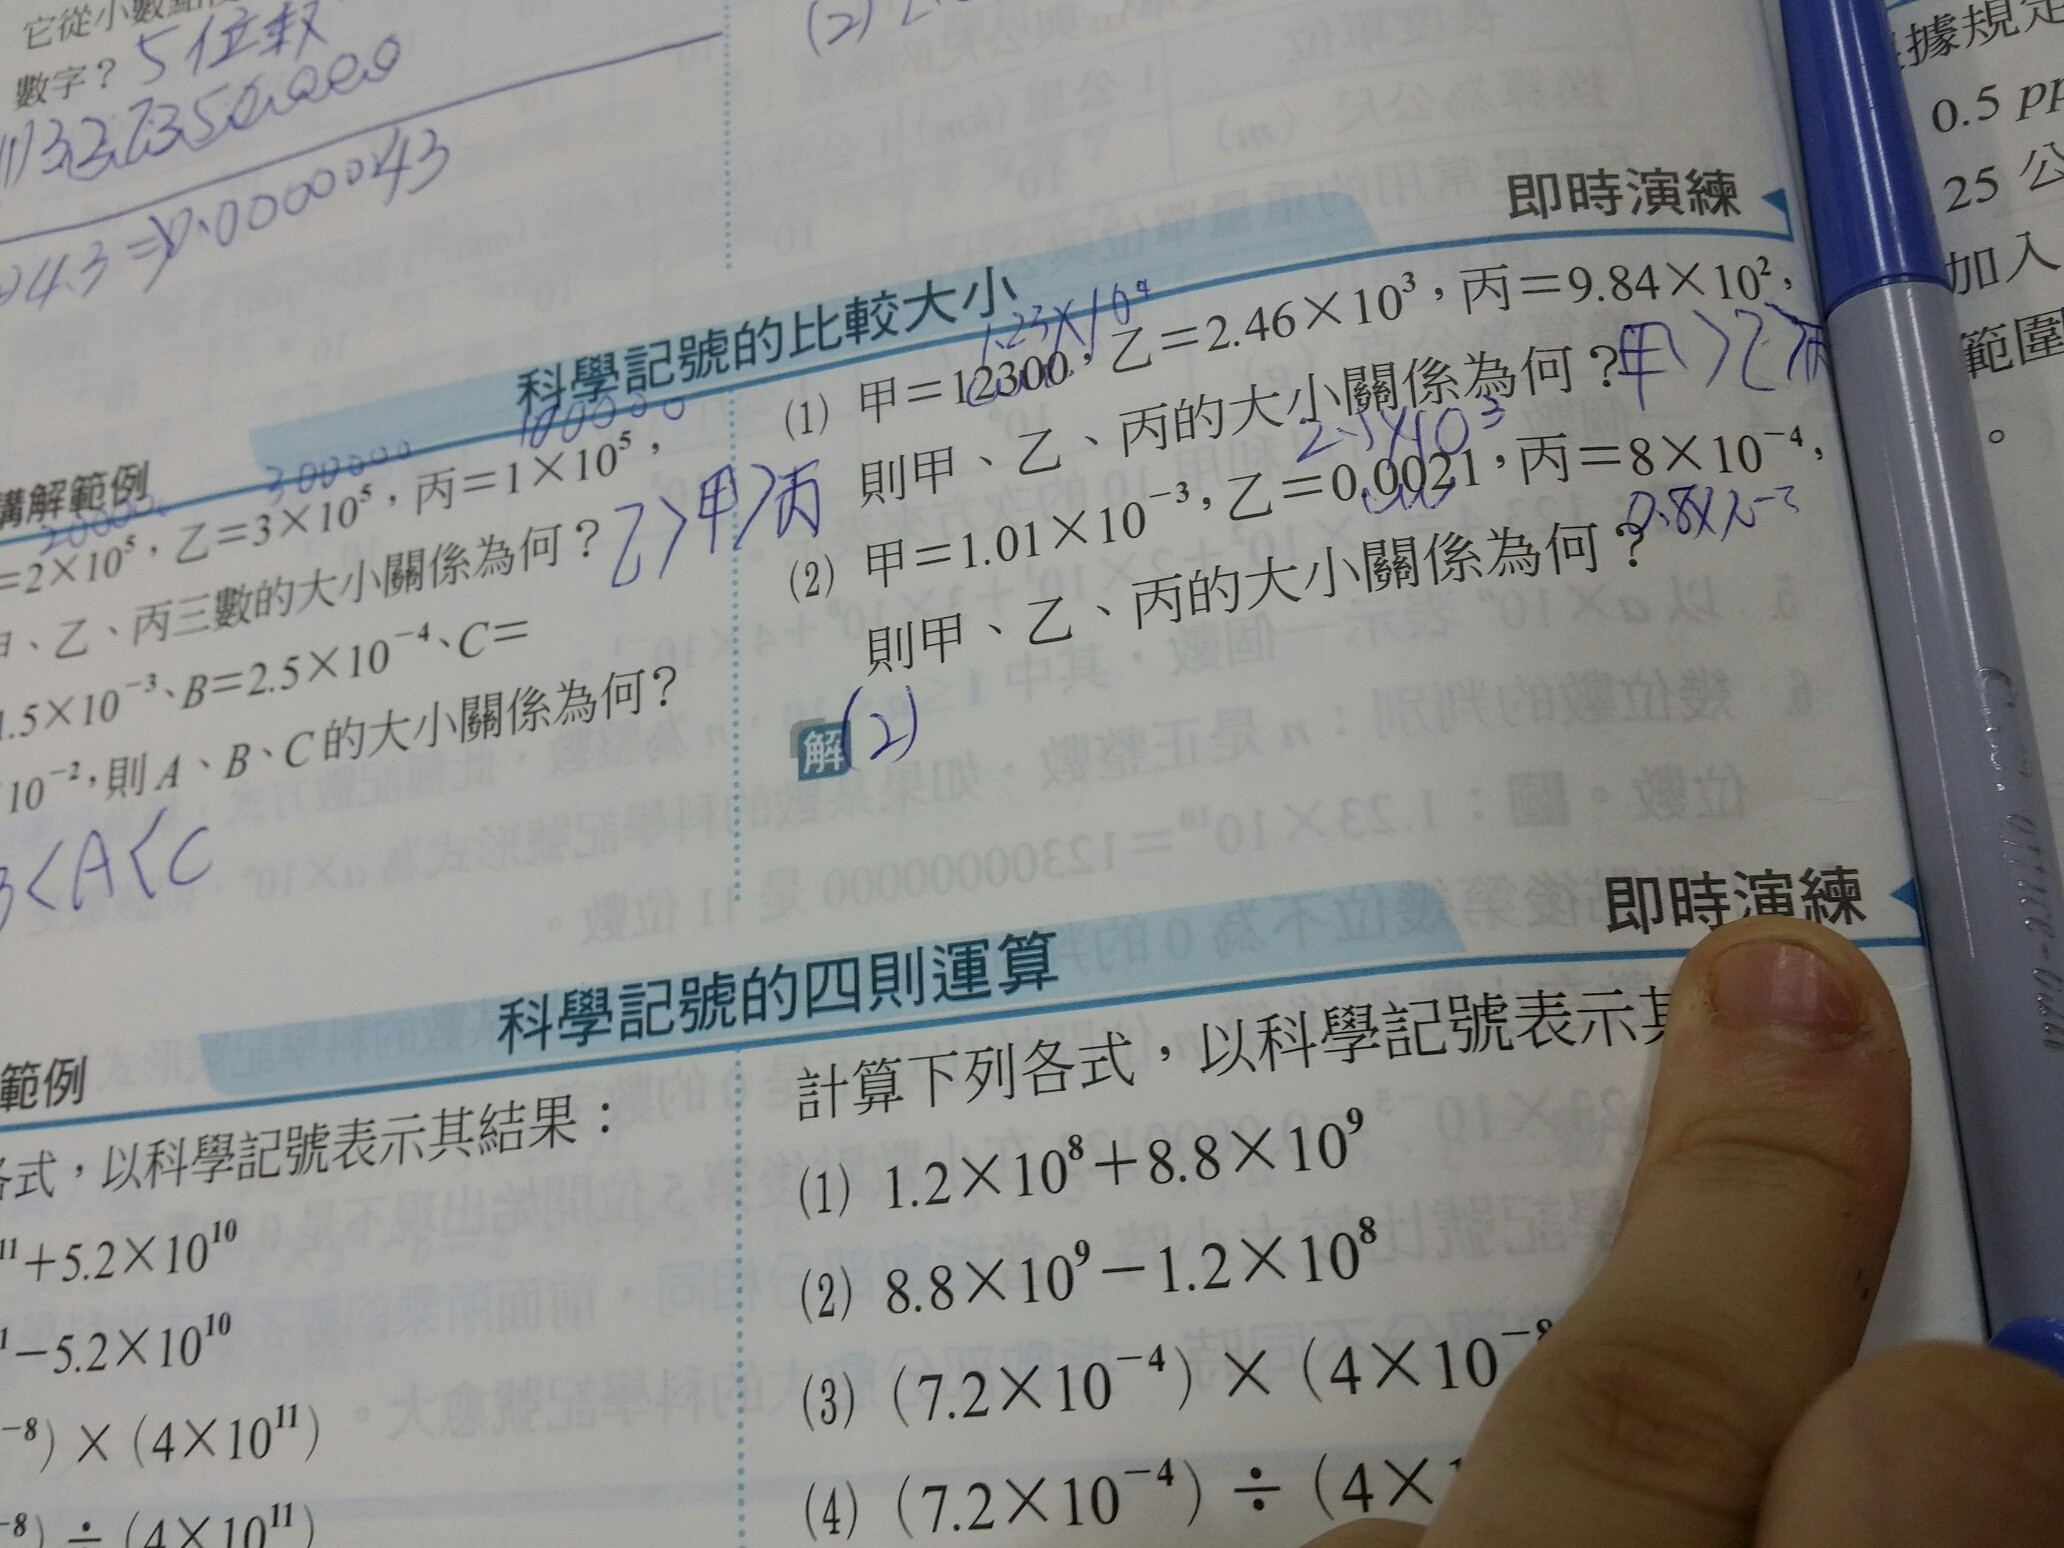 它從小數點後
數字？ 5位數
327350000
43 ⇒ 0.0000043
即時演練
科學記號的比較大小
講解範例
200000 300000 100000
=2×10⁵，乙=3×10⁵，丙=1×10⁵，
、乙、丙三數的大小關係為何？ 乙>甲>丙
1.5×10⁻³、B=2.5×10⁻⁴、C=
10⁻²，則A、B、C的大小關係為何？
<A<C
1.23×10⁴
(1) 甲=12300，乙=2.46×10³，丙=9.84×10²，
則甲、乙、丙的大小關係為何？ 甲>乙>丙
(2) 甲=1.01×10⁻³，乙=0.0021，丙=8×10⁻⁴，
則甲、乙、丙的大小關係為何？
解 (2)
即時演練
科學記號的四則運算
範例
各式，以科學記號表示其結果：
¹¹+5.2×10¹⁰
−5.2×10¹⁰
⁻⁸) × (4×10¹¹)
⁻⁸) ÷ (4×10¹¹)
計算下列各式，以科學記號表示其
(1) 1.2×10⁸+8.8×10⁹
(2) 8.8×10⁹−1.2×10⁸
(3) (7.2×10⁻⁴) × (4×10⁻⁸
(4) (7.2×10⁻⁴) ÷ (4×
據規定
0.5 pp
25 公
加入
範圍
。